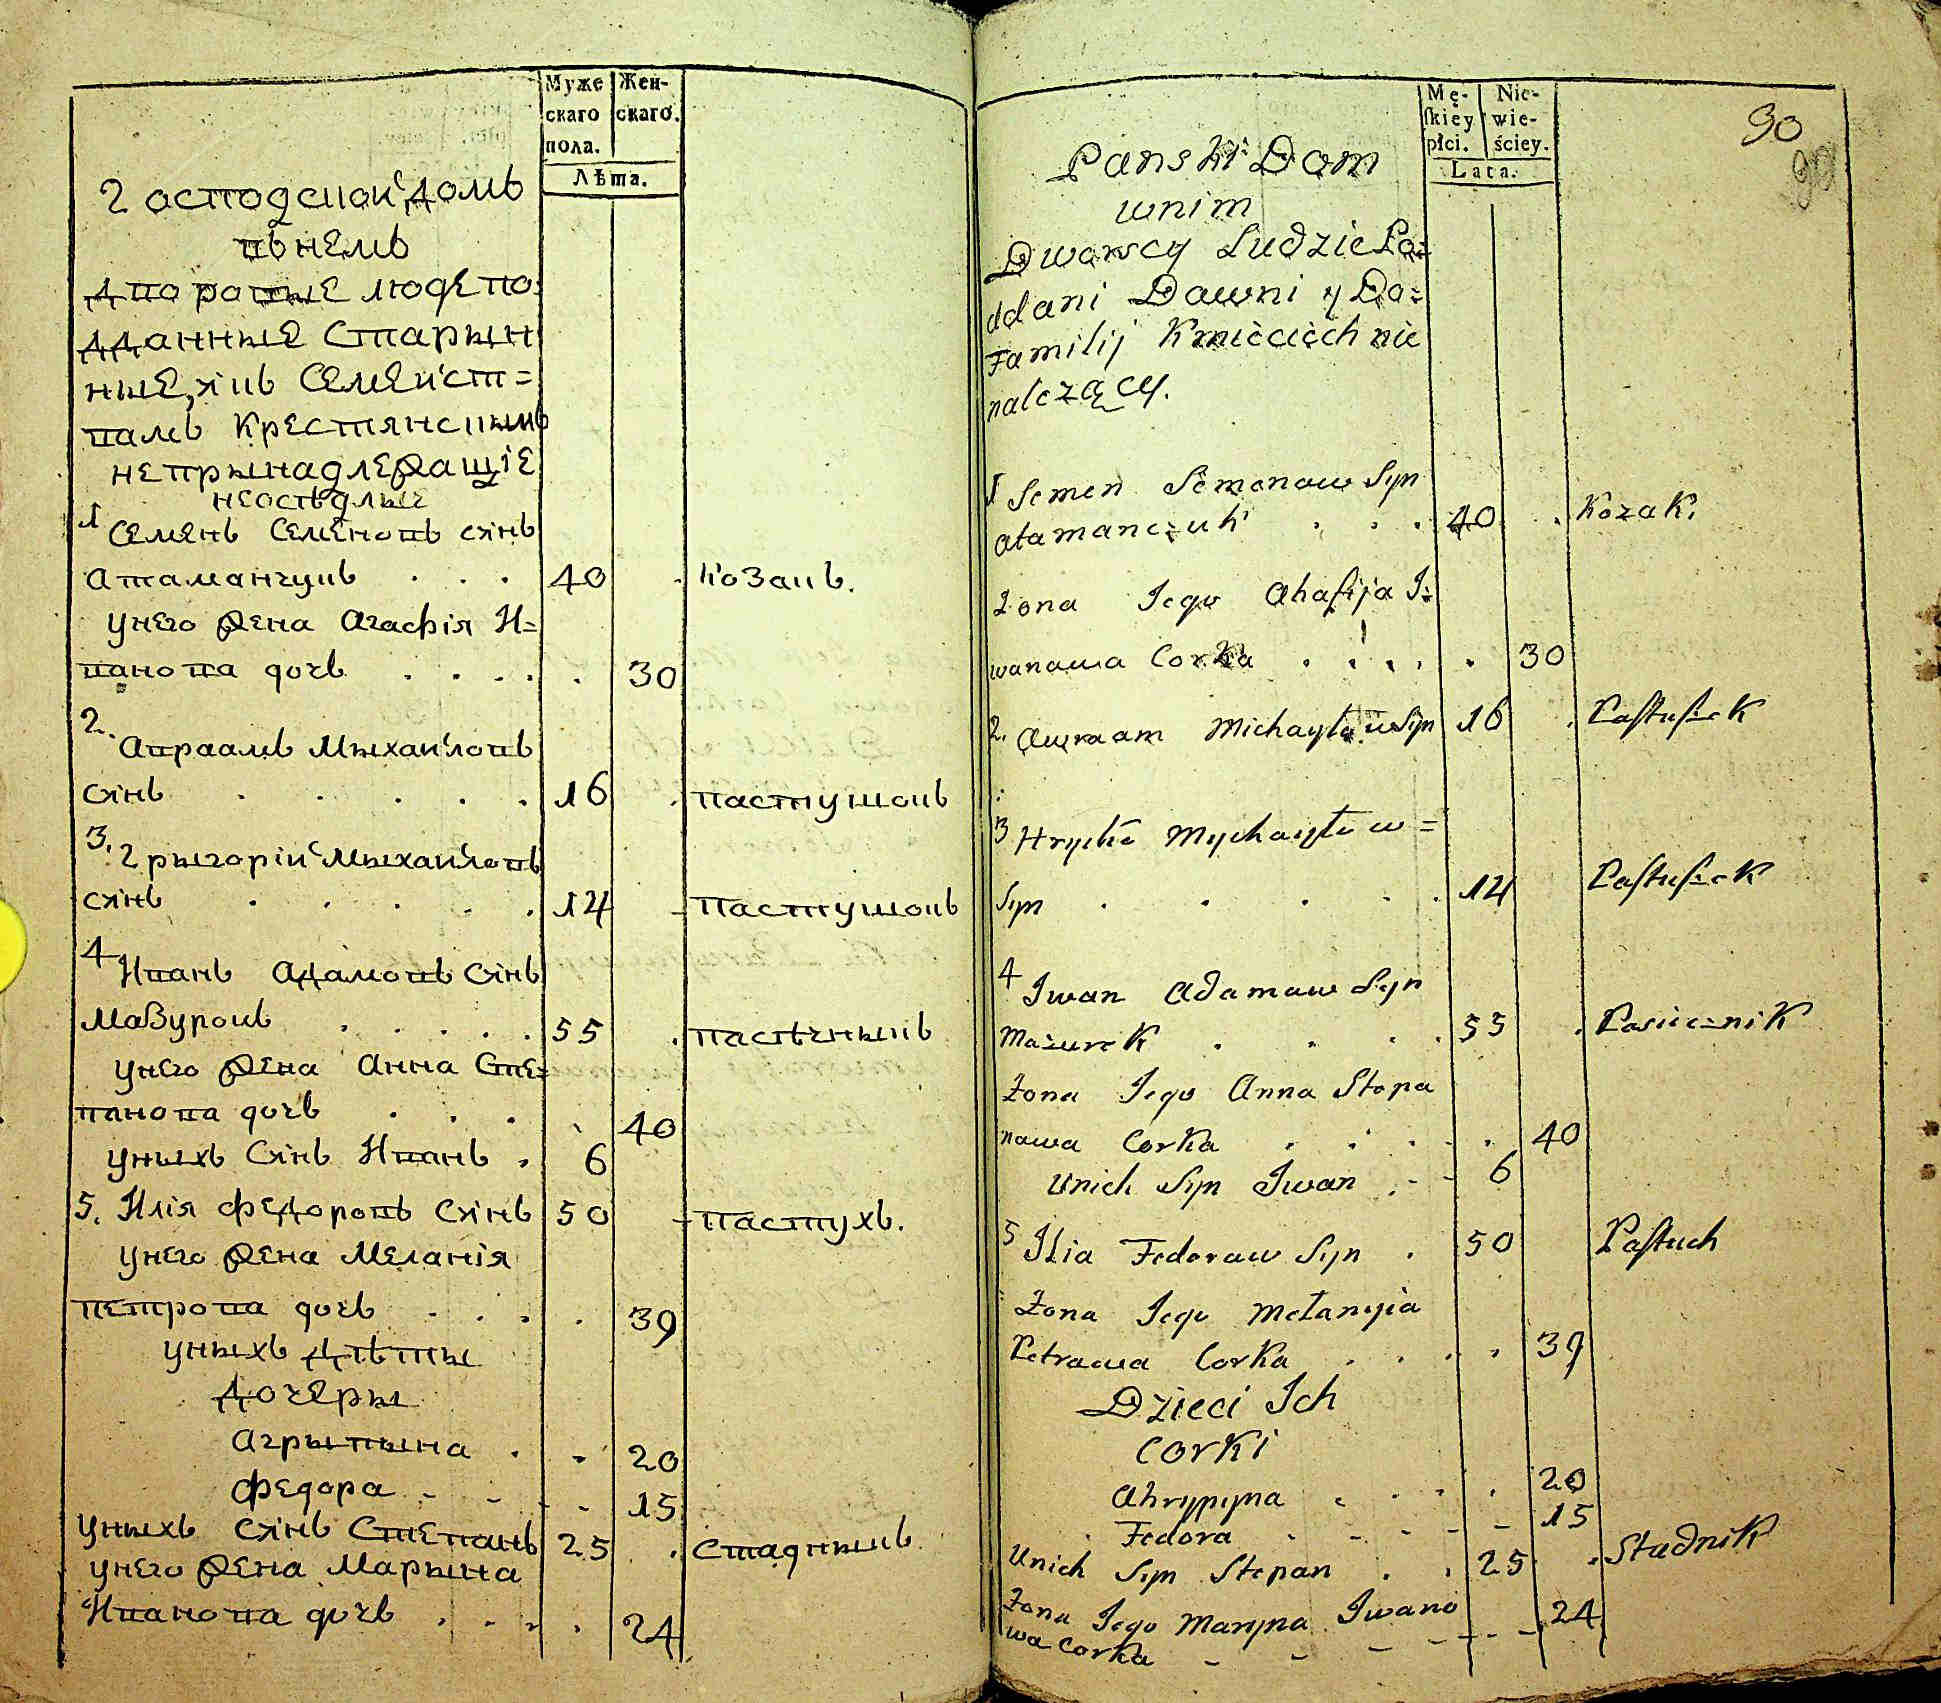 Муже
скаго
пола.
Жен-
скаго.
Лѣта.
Господскій домъ
въ немъ
дворовые люде по=
дданные старын
ные, къ семейст=
вамъ крестянскымъ
непрынадлежащіе
неосѣдлые
1 Семенъ Семеновъ сынъ
Атаманчукъ . . . 40 . козакъ.
унего жена Агафія И=
ванова дочъ . . . . . 30
2. Авраамъ Мыхайловъ
сынъ . . . . . 16 . пастушокъ
3. Грыгорій Мыхайловъ
сынъ . . . . . 14 - пастушокъ
4 Иванъ Адамовъ сынъ
Мазурокъ . . . . . 55 . пасѣчныкъ
унего жена Анна Сте=
панова дочъ . . . . 40
уныхъ сынъ Иванъ . 6
5. Илія Федоровъ сынъ 50 - пастухъ.
унего жена Меланія
Петрова дочъ . . . . 39
уныхъ дѣты
дочеры
Агрыпына . . 20
Федора - - - - 15
уныхъ сынъ Степанъ 25 . стадныкъ
унего жена Марына
Иванова дочъ . . . . . 24
Mę-
skiey
płci.
Nie-
wie-
ściey.
Lata.
90
90
Panski Dom
w nim
Dworscy Ludzie Po=
ddani Dawni y Do=
Familij Kmiecicch nie
nalczący.
1 Semen Semenaw Syn
Atamanczuk . . . 40 . Kozak.
Żona Jego Ahafija I=
wanawa Corka . . . . . 30
2. Awraam Michayłow Syn 16 . Pastuszek
3 Hryćko Mychayłow =
Syn . . . . . 14 Pastuszek
4 Iwan Adamaw Syn
Mazurek . . . . 55 . Pasiecznik
Żona Jego Anna Stepa
nawa Corka . . . - . 40
Unich Syn Iwan . - - 6
5 Ilia Fedoraw Syn . 50 Pastuch
Żona Jego Mełanyia
Petrawa Corka . . . . 39
Dzieci Ich
Corki
Ahrypyna . . . . 20
Fedora . - - - - 15
Unich Syn Stepan . . 25 . Stadnik
Żona Jego Maryna Iwano
wa Corka - - - - - - 24